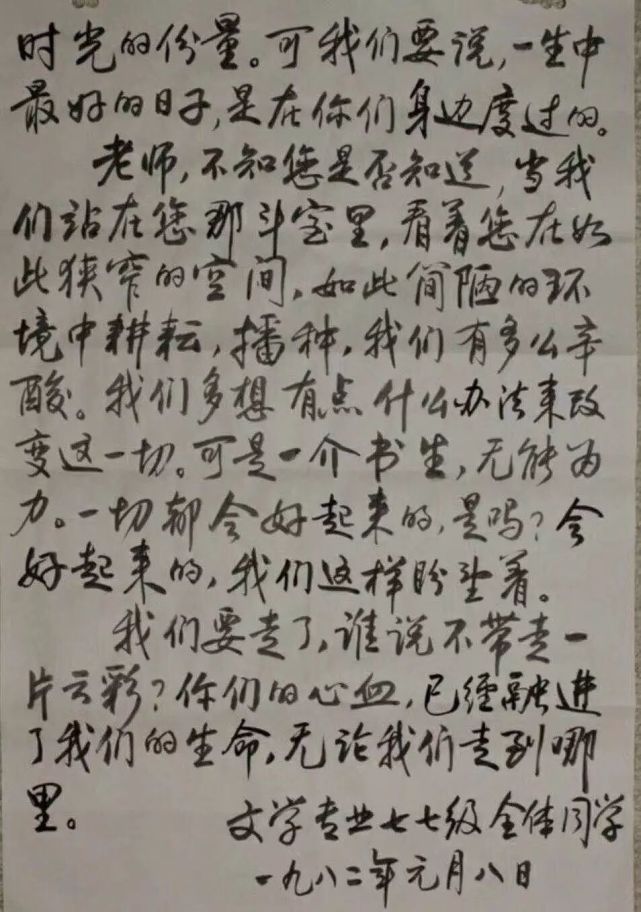 时光的份量。可我们要说,一生中
最好的日子,是在你们身边度过的。
老师,不知您是否知道,当我
们站在您那斗室里,看着您在如
此狭窄的空间,如此简陋的环
境中耕耘,播种,我们有多么辛
酸。我们多想有点什么办法来改
变这一切。可是一介书生,无能为
力。一切都会好起来的,是吗?会
好起来的,我们这样盼望着。
我们要走了,谁说不带走一
片云彩?你们的心血,已经融进
了我们的生命,无论我们走到哪
里。
文学专业七七级全体同学
一九八二年元月八日